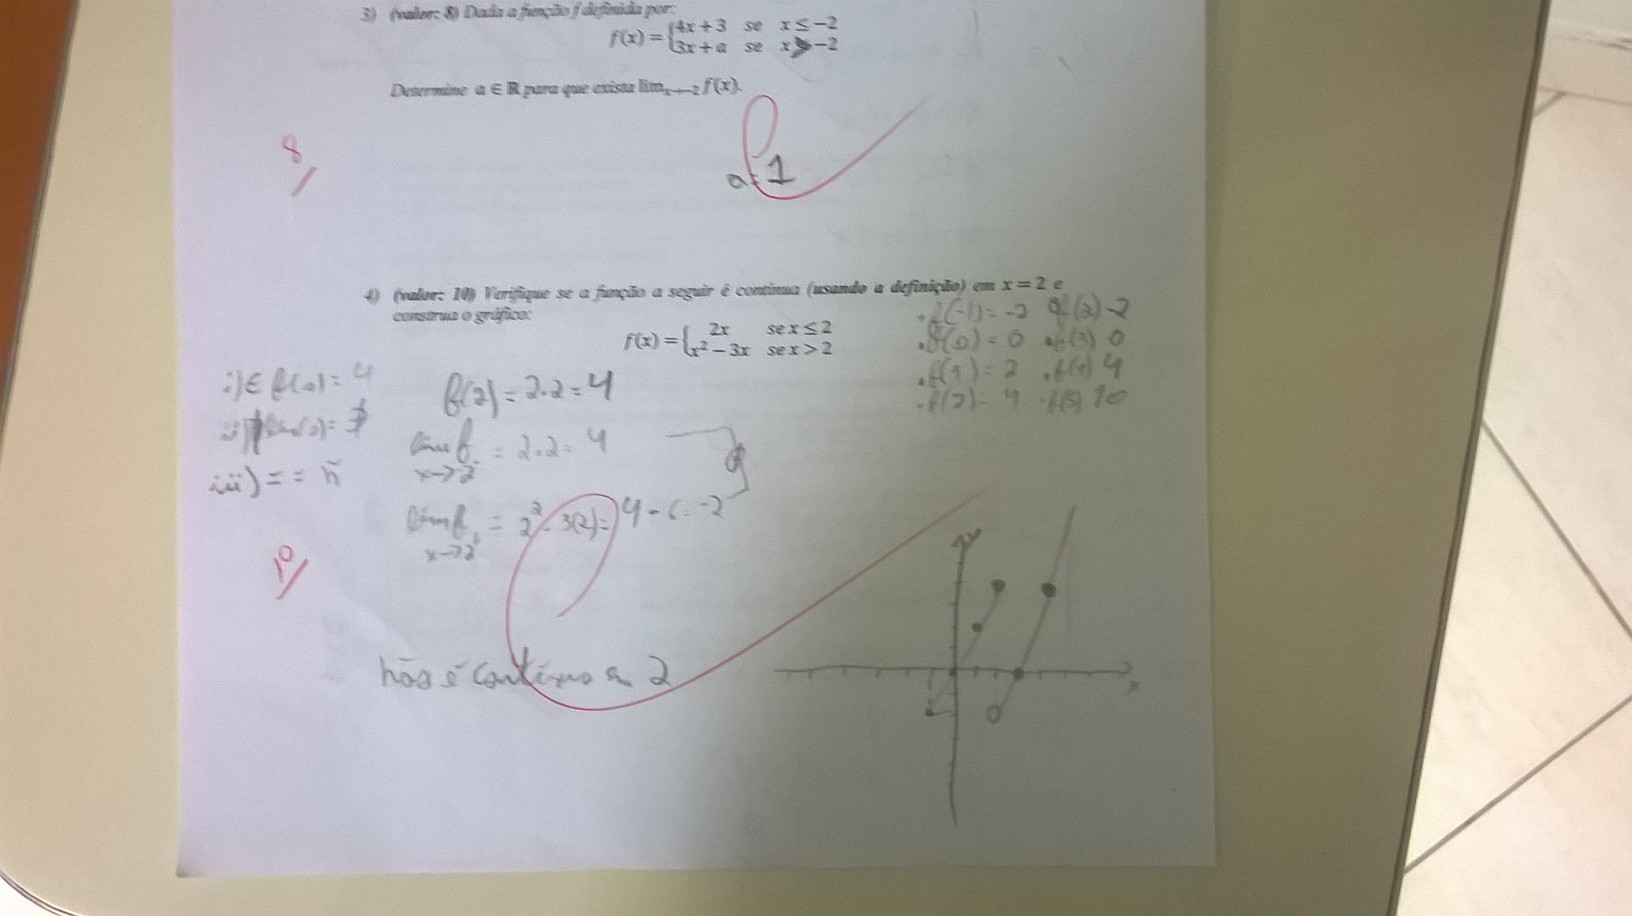 3) (valor: 8) Dada a função f definida por:
f(x) = {4x + 3 se x ≤ −2
3x + a se x > −2
Determine a ∈ ℝ para que exista lim x→−2 f(x).
8
a = 1
4) (valor: 10) Verifique se a função a seguir é contínua (usando a definição) em x = 2 e
construa o gráfico:
f(x) = {2x se x ≤ 2
x² − 3x se x > 2
.f(-1) = -2 f(2) -2
.f(0) = 0 .f(3) 0
.f(1) = 2 .f(4) 4
.f(2) = 4 .f(5) 10
i) ∈ f(2) = 4
iii) = = ñ
f(2) = 2.2 = 4
lim f x→2⁻ = 2.2 = 4
lim f x→2⁺ = 2² - 3(2) = 4 - 6 = -2
10
não é contínuo em 2
y
x